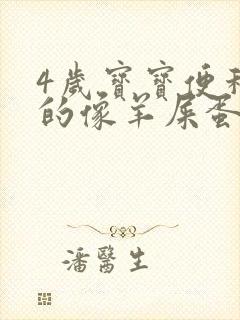 4歲寶寶便秘
的像羊屎蛋
潘醫生